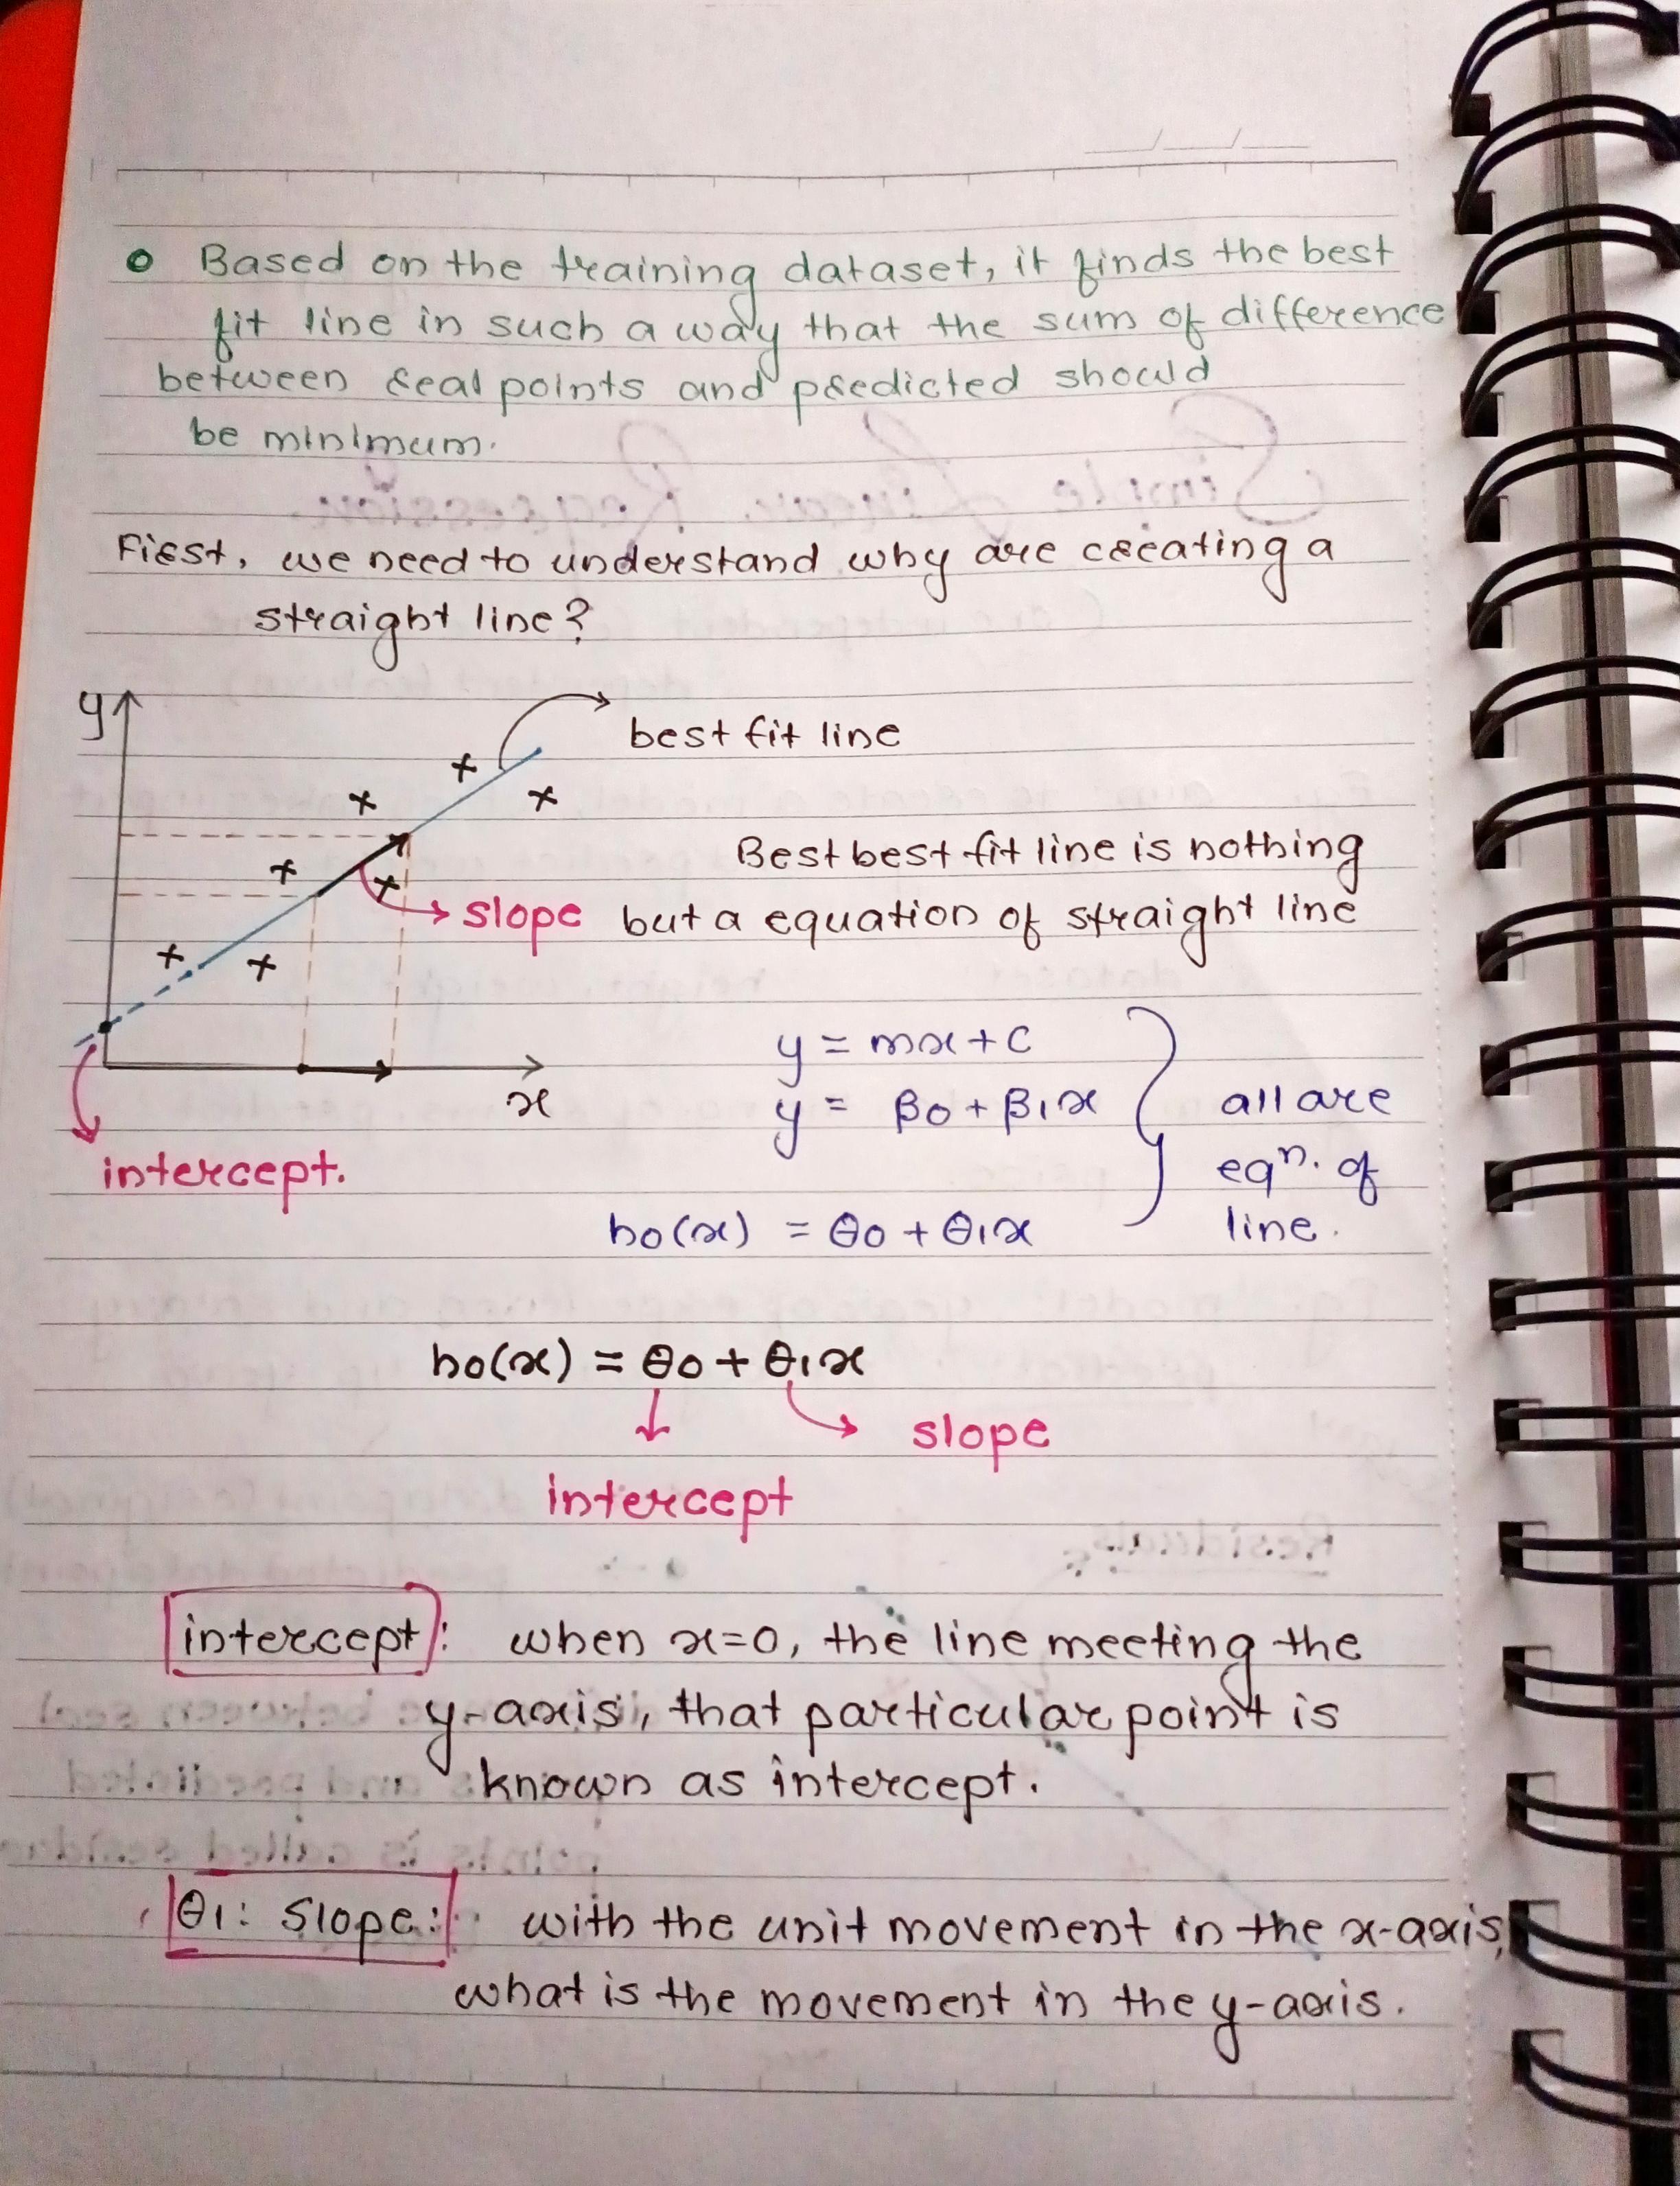 Based on the training dataset, it finds the best
fit line in such a way that the sum of difference
between real points and predicted should
be minimum.
Simple Linear Regression
First, we need to understand why are creating a
straight line?
y
best fit line
Best best fit line is nothing
slope but a equation of straight line
y = mx + c
x
y = β0 + β1x
all are
intercept.
eqn. of
h0(x) = θ0 + θ1x
line.
h0(x) = θ0 + θ1x
slope
intercept
Residuals
intercept: when x=0, the line meeting the
y-axis, that particular point is
known as intercept.
θ1: Slope: with the unit movement in the x-axis,
what is the movement in the y-axis.